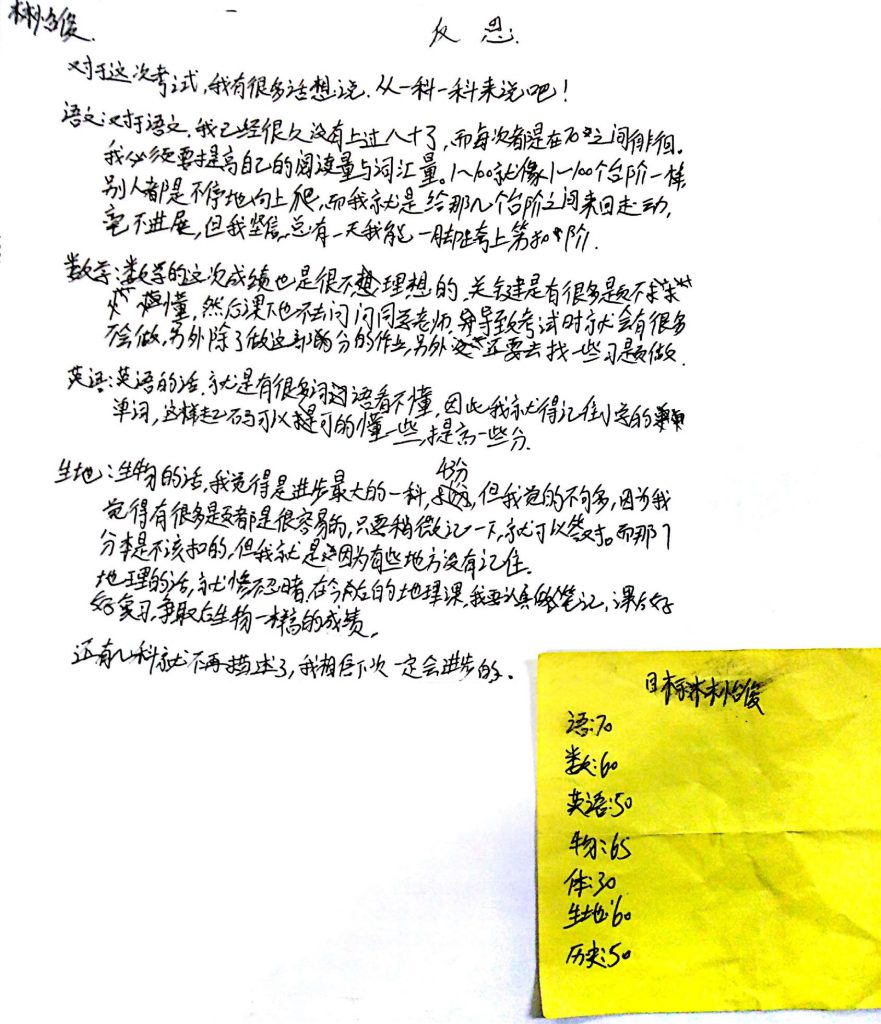 林怡俊.
反思.
对于这次考试,我有很多话想说.从一科一科来说吧!
语文:对于语文.我已经很久没有上过八十了,而每次都是在70之间徘徊.
我必须要提高自己的阅读量与词汇量。1~60就像1~100个台阶一样,
别人都是不停地向上爬,而我就是给那几个台阶之间来回走动,
毫不进展,但我坚信,总有一天我能一脚跨上第 阶.
数学:数学的这次成绩也是很不理想的,关键是有很多题不
懂,然后课下也不去问问同 老师,导致考试时就会有很多
不会做,另外除了做这部分的作业,另外 还要去找一些习题做.
英语:英语的话.就是有很多词语看不懂,因此我就得记住 的
单词,这样起码可以 的懂一些,提高一些分.
43分
生地:生物的话,我觉得是进步最大的一科, ,但我觉的不够多,因为我
觉得有很多题都是很容易的,只要稍微记一下,就可以答对。而那7
分本是不该扣的,但我就是因为有些地方没有记住.
地理的话,就惨不忍睹,在今后的地理课,我要认真做笔记,课后好
好复习,争取后生物一样高的成绩。
还有几科就不再描述了,我相信下次一定会进步的.
目标 林怡俊
语:70
数:60
英语:50
物:65
体:30
生地:60
历史:50